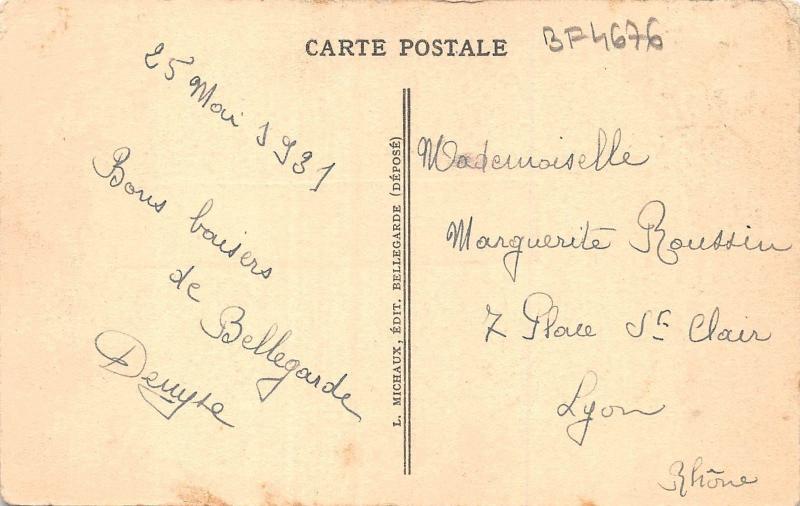 CARTE POSTALE
BF4676
25 Mai 1931
Bons baisers
de Bellegarde
Denyse
L. MICHAUX, ÉDIT. BELLEGARDE (DÉPOSÉ)
Mademoiselle
Marguerite Roussin
7 Place St Clair
Lyon
Rhône